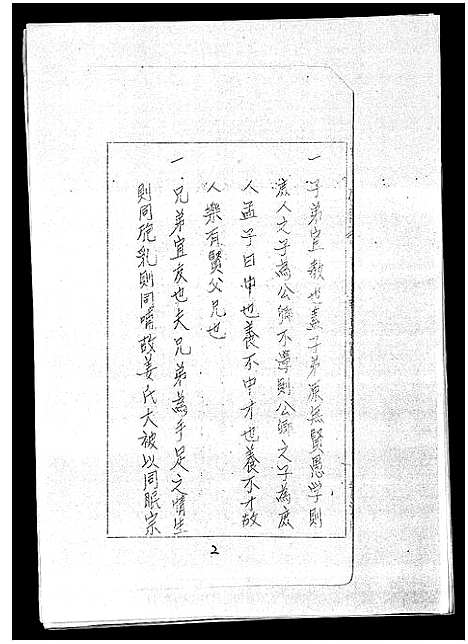 一 子弟宜教也蓋子弟原無賢愚学則
庶人之子為公卿不學則公卿之子為庶
人孟子曰中也養不中才也養不才故
人樂有賢父兄也
一 兄弟宜友也夫兄弟為手足之情生
則同胞乳則同哺故姜氏大被以同眠宗
2